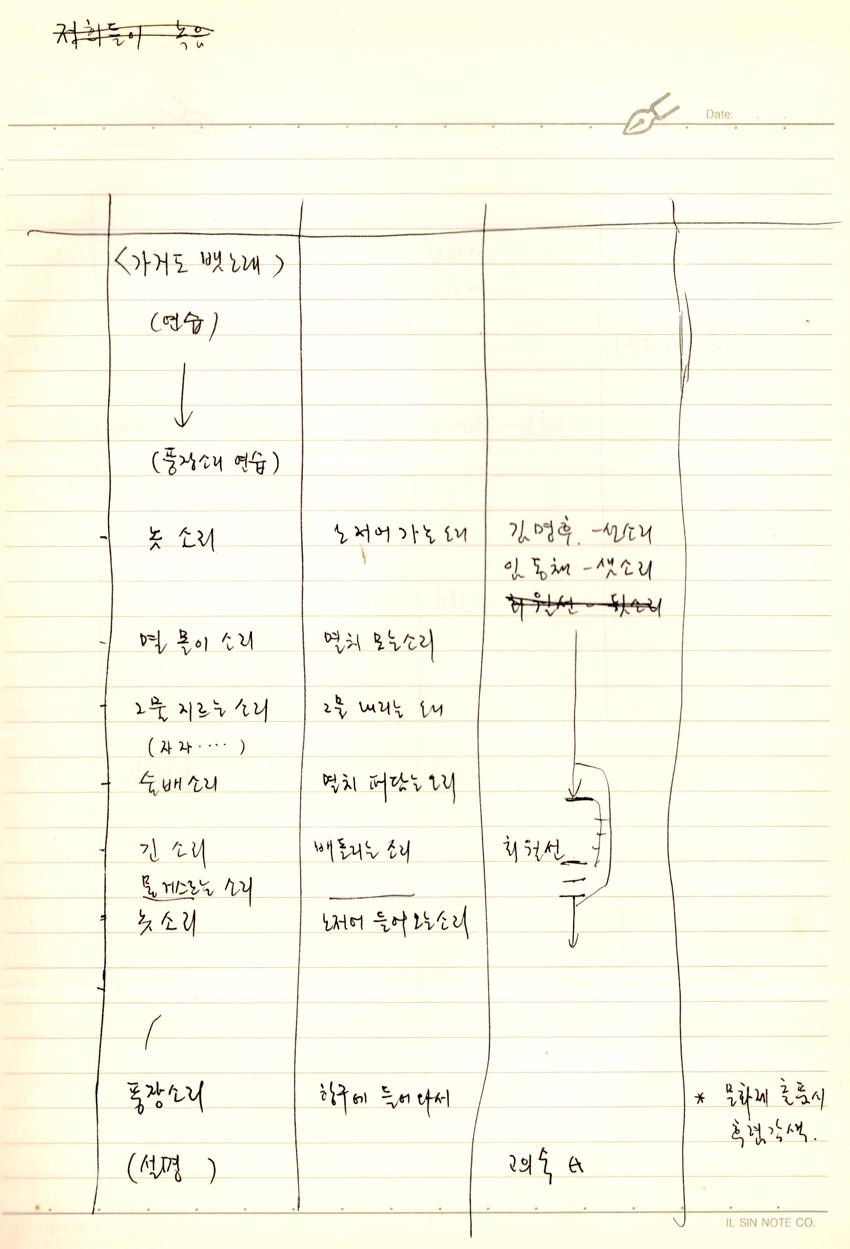 정희들이 녹음
Date:
<가거도 뱃노래>
(연습)
(풍장소리 연습)
놋 소리 노저어 가는 소리 김명후. -선소리
임동채 -샛소리
최원선 - 뒷소리
멸 몰이 소리 멸치 모는소리
그물 지르는 소리 그물 내리는 소리
(자자.... )
술배소리 멸치 퍼담는 소리
긴 소리 배돌리는 소리 최원선
물 게스르는 소리
놋 소리 노저어 들어오는소리
풍장소리 항구에 들어와서 * 문화제 출품시
후렴각색.
(설명 ) 고의숙 A
IL SIN NOTE CO.